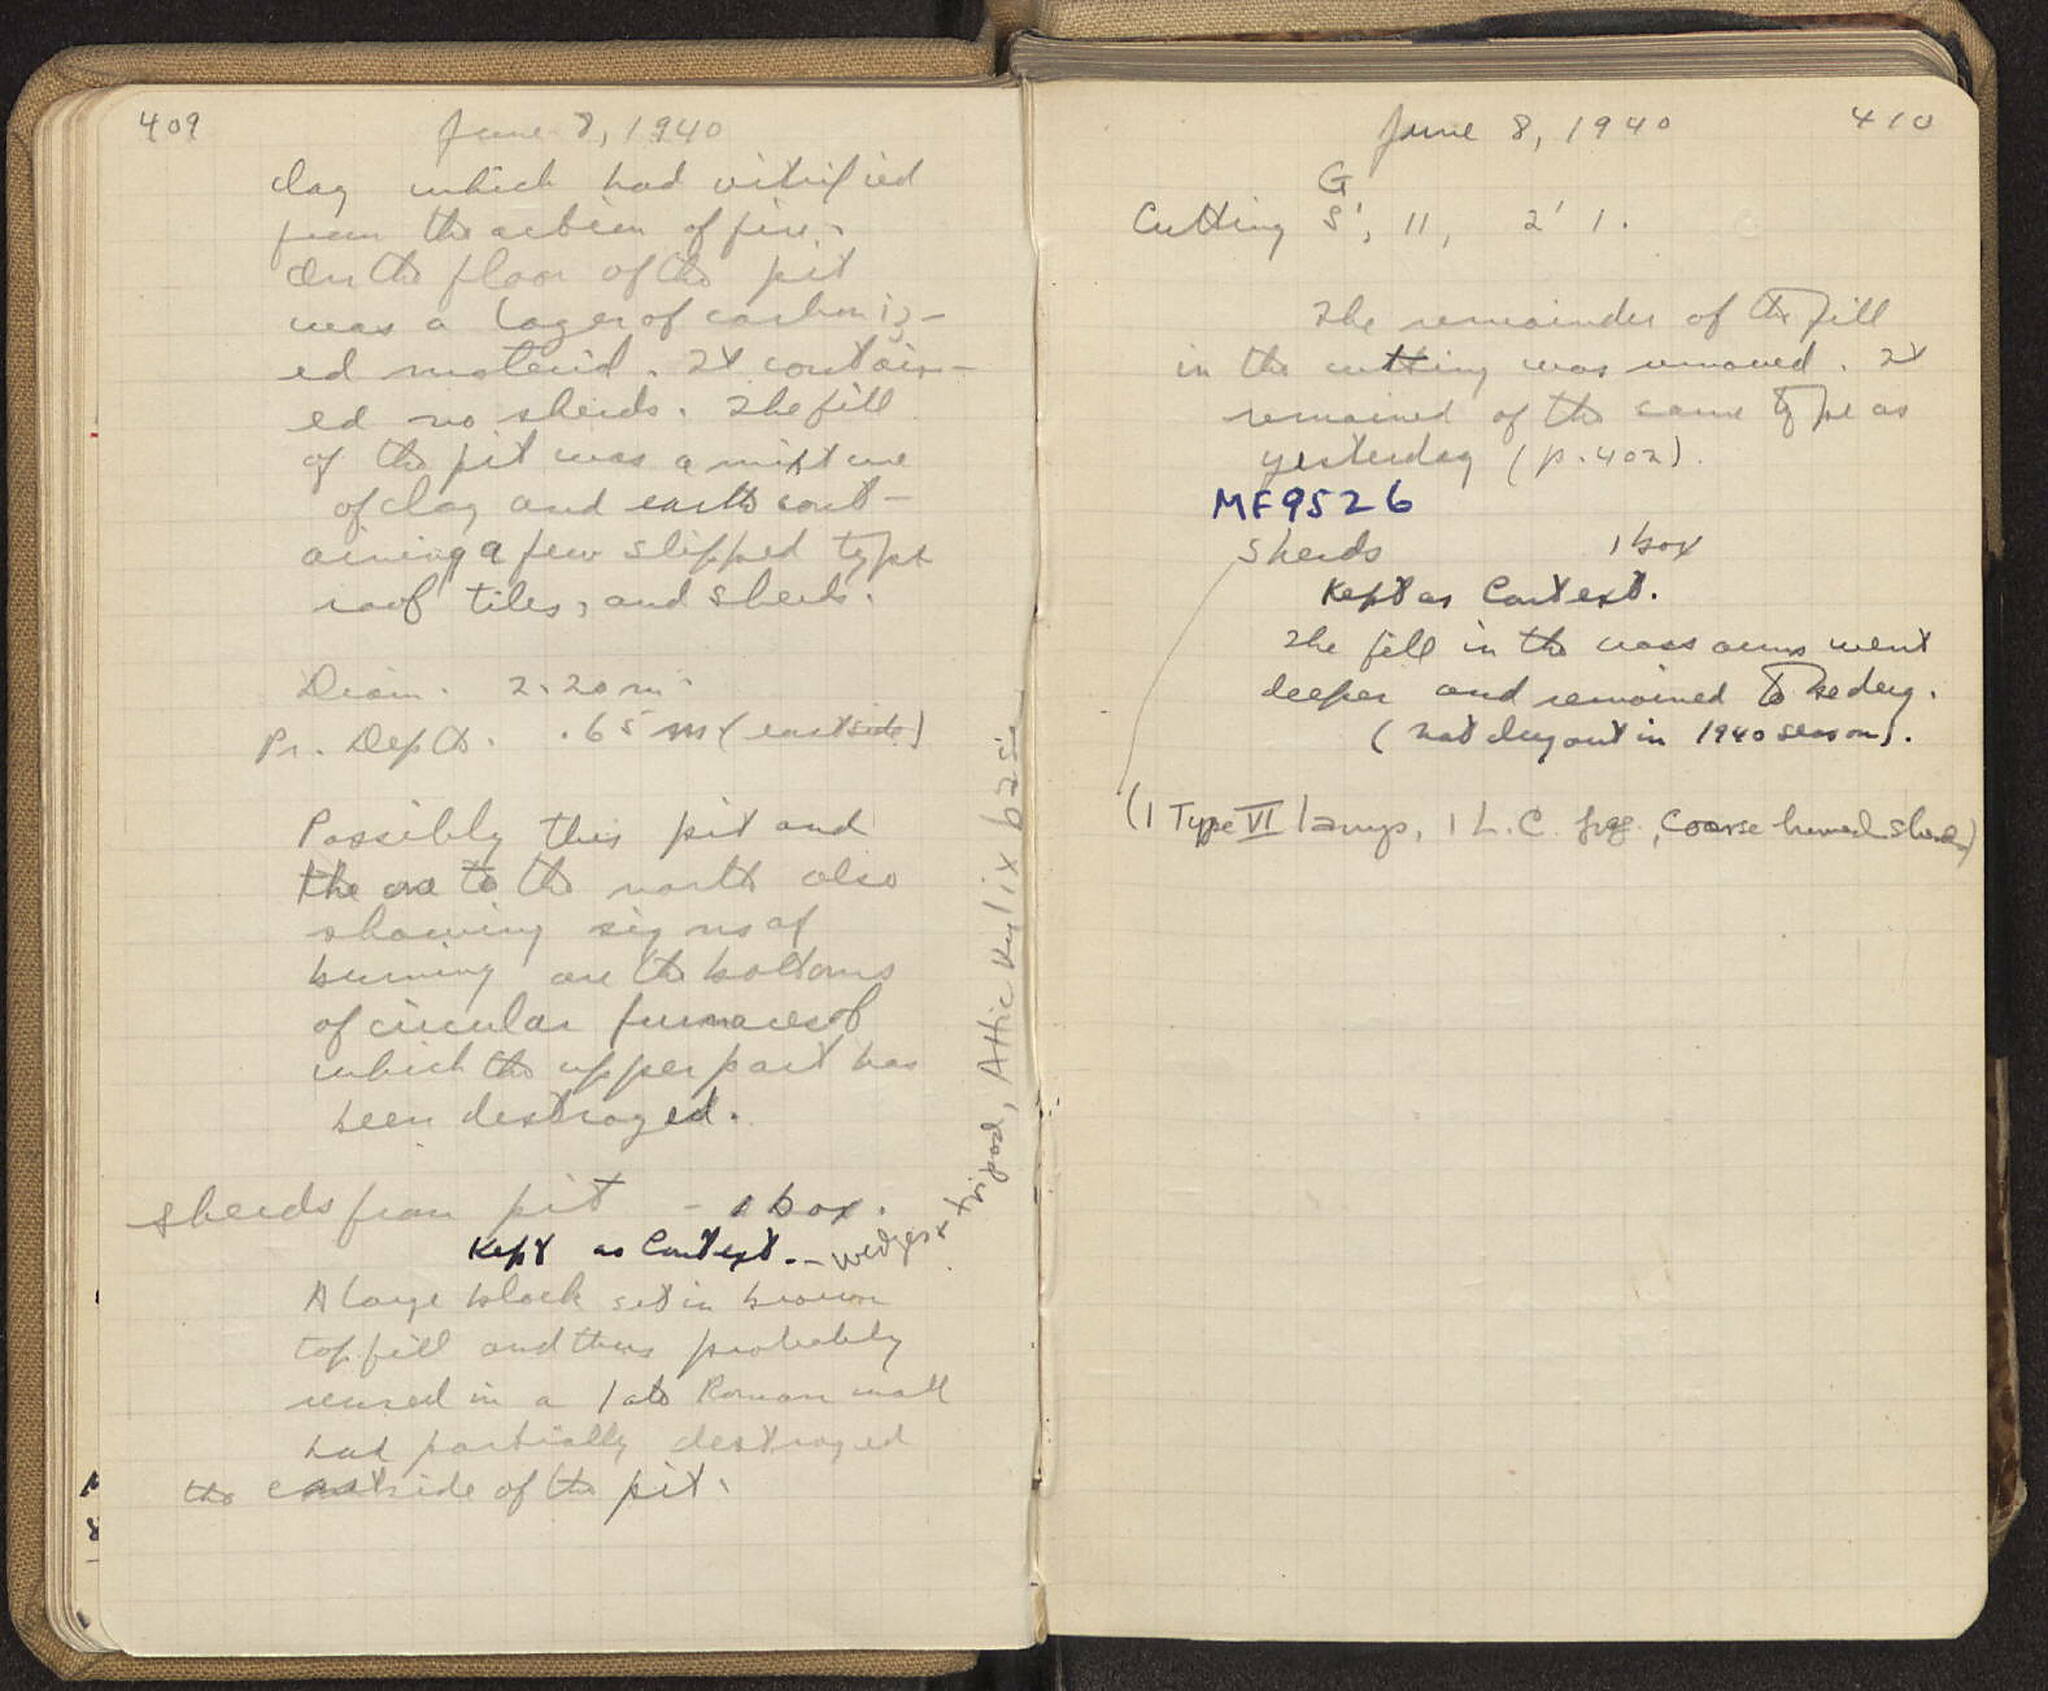 409
June 8, 1940
clay which had vitrified
from the action of fire.
On the floor of the pit
was a layer of carboniz-
ed material. It contain-
ed no sherds. The fill
of the pit was a mixture
of clay and earth cont-
aining a few slipped type
roof tiles, and sherds.
Diam. 2.20 m.
Pr. Depth. .65 m (east side)
Possibly this pit and
the one to the north also
showing signs of
burning are the bottoms
of circular furnaces of
which the upper part has
been destroyed.
sherds from pit - 1 box.
Kept as Context. - wedges & tripod, Attic kylix base
A large block set in brown
top fill and thus probably
reused in a late Roman wall
had partially destroyed
the eastside of the pit.
June 8, 1940
410
G
Cutting S', 11, 2' 1.
The remainder of the fill
in the cutting was removed. It
remained of the same type as
yesterday (p. 402).
MF9526
Sherds 1 box
Kept as Context.
The fill in the cross arms went
deeper and remained to be dug.
(not dug out in 1940 season).
(1 Type VI lamp, 1 L.C. frg., coarse burned sherds)